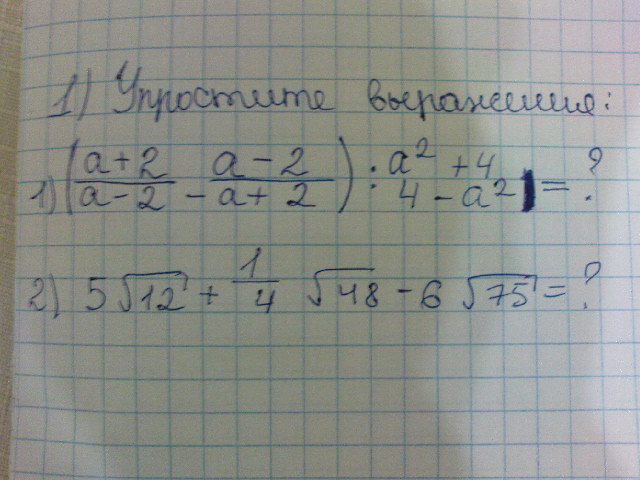 1) Упростите выражение:
1) (a+2/a-2 - a-2/a+2) : a² + 4/4 - a² = ?
2) 5√12 + 1/4 √48 - 6 √75 = ?